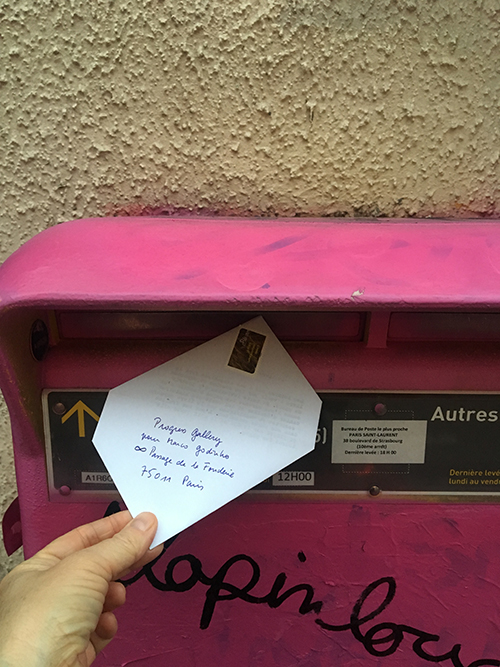 Progress Gallery
pour Marco Godinho
∞ Passage de la Fonderie
75011 Paris
Autres
Bureau de Poste le plus proche
PARIS SAINT-LAURENT
38 boulevard de Strasbourg
(10ème arrdt)
Dernière levée : 18 H 00
12H00
Dernière levé
lundi au vend
lapin lou